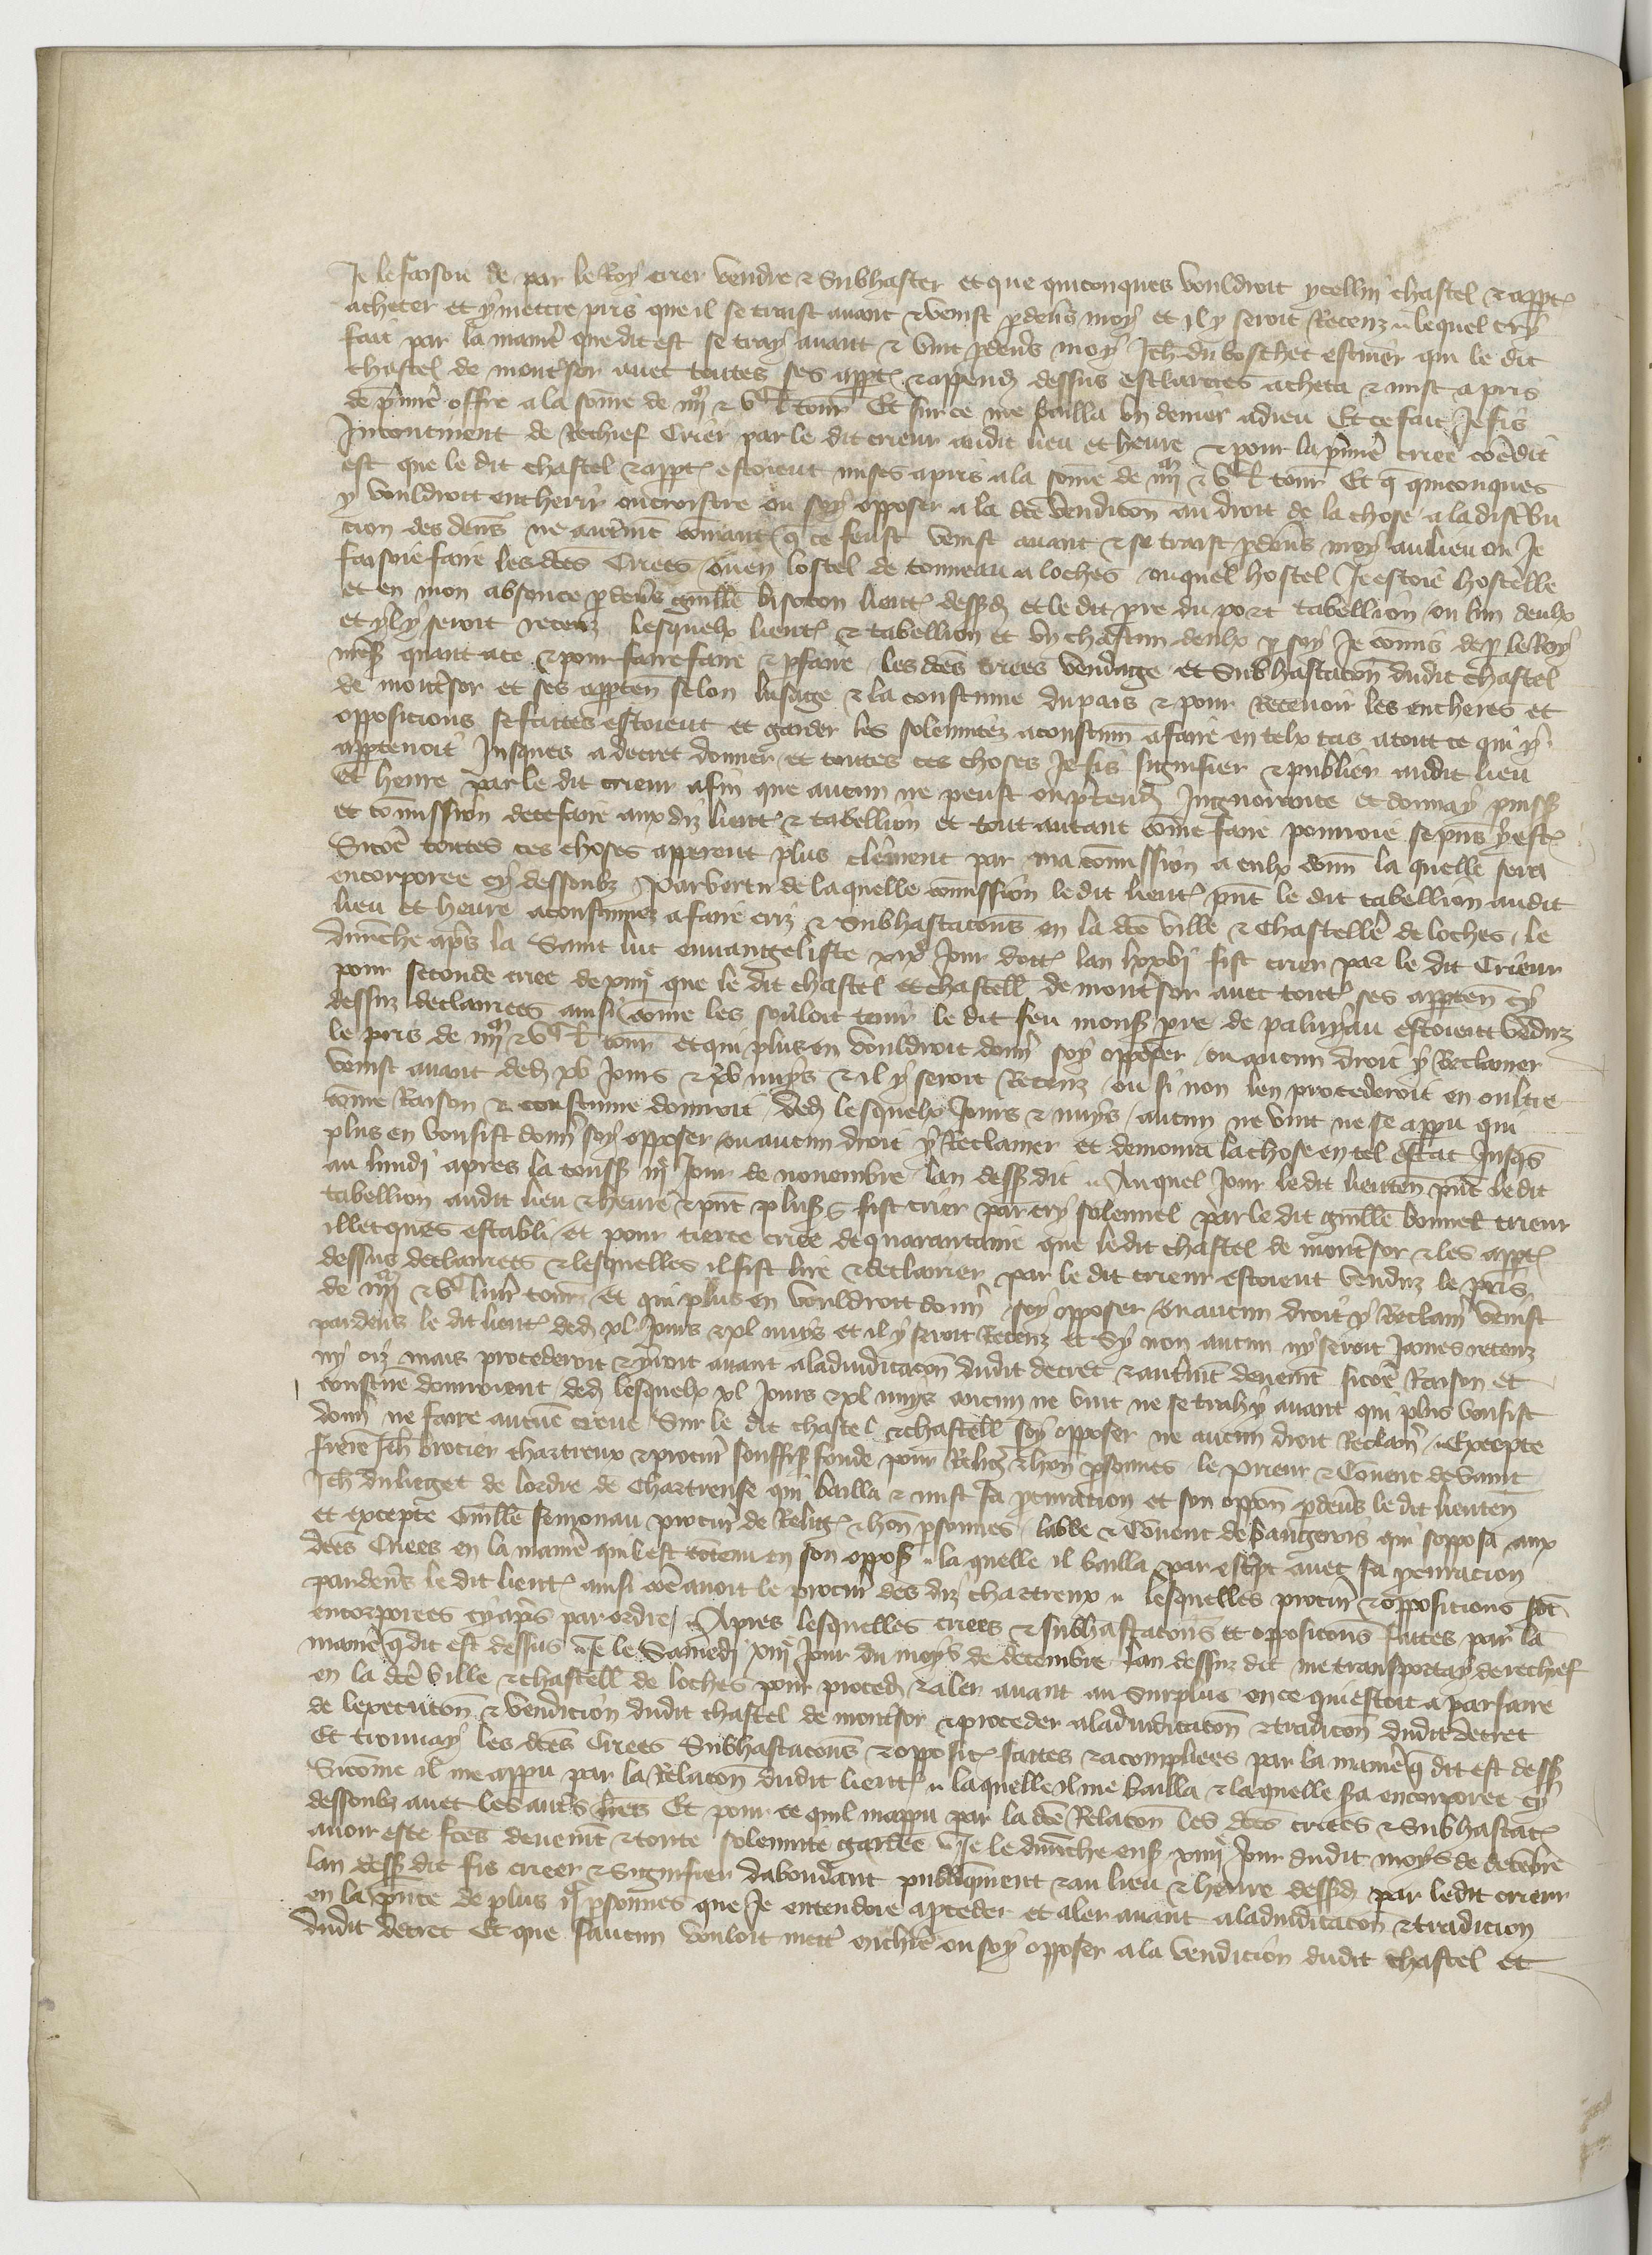 Je le faisoie de par le Roy crier vendre & Subhaster et que quiconques vouldroit ycelluy chastel & appt
acheter et y mettre pris que il se traist avant & venist pdevs moy et il y seroit Receuz lequel cry
fait par la manie que dit est se tray avant & vint pdevs moy Jeh du boschet escuier qui le dit
chastel de montsor avec toutes ses appt & append dessus esclarcies acheta & mist a pris
de pmie offre a la some de iiijm & vc l tour Et sur ce me bailla un denier adieu Et ce fait Je fis
Incontinent de Rechief Crier par le dit crieur audit lieu et heure & pour la pmie criee coe dit
est que le dit chastel & appt estoient mises a pris a la some de iiijm & vc l tour Et q quiconques
y vouldroit encherir ou croistre ou soy opposer a la dce vendicon au droit de la chose a la distbu
cion des dens ne autmt comant q ce feust venist avant & se traist pdevs moy au lieu ou Je
faisoie faire les dces Criees ou en lostel de tonneau a loches ouquel hostel Je estoie hostelle
et en mon absence pdevs guille bisoton lieut dessd et le dit pre du port tabellion ou lun deulx
et y ly seroit receuz lesquelx lieut & tabellion et un chascun deulx p soy Je comis de p le Roy
mess quant a ce & pour faire faire & pfaire les dces criees vendage et Subhastacon dudit chastel
de montsor et ses apprten selon lusage & la coustume du pais & pour Recevoir les encheres et
opposicions se faittes estoient et garder les solemnitez acoustum a faire en telx cas a tout ce qui y
apptenoit Jusques a decret donner et toutes ces choses Je fis signifier & publier audit lieu
et heure par le dit crieur afin que aucun ne peust ou ptend Ingnorance et donnay puiss
et comission de ce faire aux diz lieut & tabellion et tout autant come faire pourroie se pns y est
Sicoe toutes ces choses apperent plus clement par ma comission a eulx donn la quelle sera
encorporee cy dessoubz Par vertu de laquelle comission le dit lieut pnt le dit tabellion audit
lieu et heure acoustumez a faire criz & Subhastacons en la dce ville & Chastelle de loches le
dimche aps la Saint luc euvangeliste xixe Jour doct lan lxxvi fist crier par le dit Crieur
pour seconde criee de xiiij que le dit chastel et chastell de montsor avec tout ses apprten cy
dessuz declairees ainsi come les souloit tenir le dit feu mons pre de paluyau estoient venduz
le pris de iiijm & vc l tour et qui plus en vouldroit donn soy opposer ou aucun droit y Reclamer
venist avant ded xv Jours & xv nuys & il y seroit Receuz ou si non len procederoit en oultre
come Raison & coustume donroit ded lesquelx Jours & nuys aucun ne vint ne se appu qui
plus en vousist donn soy opposer ou aucun droit y Reclamer et demoura la chose en tel estat Jusqs
au lundi apres la touss iij Jour de novembre lan dess dit Auquel Jour le dit lieuten pnt le dit
tabellion audit lieu & heure & pnt pluss fist crier par cry solennel par le dit guille bonnet crieur
illecques establi et pour tierce criee de quarantaine que le dit chastel de montsor & les appt
dessus declairees & lesquelles il fist lire & declairier par le dit crieur estoient venduz le pris
de iiijm & vc livr tour et qui plus en vouldroit donn soy opposer ou aucun droit y Reclam venist
pardevs le dit lieut ded xl Jours & xl nuys et il y seroit Receuz et Sy non aucun ny seroit James receuz
ny oiz mais procederoit & yroit avant a ladiudicacon dudit decret & autmt deuemt sicoe Raison et
coustue donroient ded lesquelx xl Jours & xl nuys aucun ne vint ne se trahy avant qui plus vousist
donn ne faire aucune creue Sur le dit chastel & chastell soy opposer ne aucun droit Reclam Excepte
frere Jeh brocier chartreux & procur souffis fonde pour Relig & hon psonnes le Prieur & Couent de Saint
Jeh du liget de lordre de Chartreuse qui bailla & mist sa pcuracion et son oppon pdevs le dit lieuten
et excepte Guille semonau procur de Relig & hon psonnes labbe & Couent de baugerais qui sopposa aux
dces Criees en la manie quil est contenu en son oppos la quelle il bailla par escpt avec sa pcuracion
pardevs le dit lieut ainsi coe avoit le procur des diz chartreux lesquelles procur & opposicions sot
encorporees cy aps par ordre Apres lesquelles criees & subhastacons et opposicons faites par la
manie q dit est dessus Je le Samedi xiij Jour du moys de decembre lan dessuz dit me transportay derechief
en la dce ville & chastell de loches pour proced & aler avant au Surplus en ce qui estoit a parfaire
de lexecucon & vendicion dudit chastel de montsor & proceder a ladiudicacon & tradicon dudit decret
Et trouvay les dces Criees Subhastacons & opposit faites & acomplies par la manie q dit est dess
Sicome il me appu par la Relacon dudit lieut laquelle il me bailla & laquelle sa encorporee cy
dessoubz avec les auts lres Et pour ce quil mappu par la dce Relacon les dces criees & Subhastac
avoir este fces deuemt & toute solemnite gardee Je le dimche ens xiiij Jour dudit moys de decebre
lan dess dit fis crieer & Signifieu dabondant publiqment & au lieu & heure dessd par ledit crieur
en la pnce de plus psonnes que Je entendoie a pceder et aler avant a ladiudicacon & tradicion
dudit decret Et que saucun vouloit mett enchie ou soy opposer a la vendicion dudit chastel et